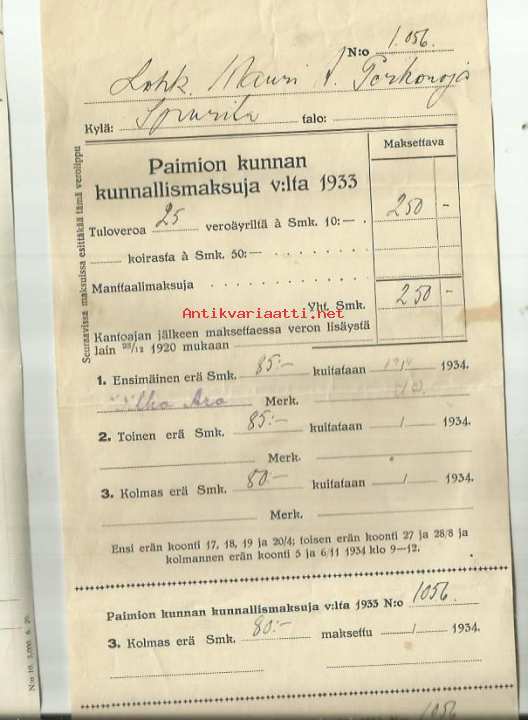 N:o 1.056.
Lohk. Mauri A. Porkonoja
Kylä: Spurila talo:
Seuraavissa maksuissa esittäkää tämä verolippu
Paimion kunnan
kunnallismaksuja v:lta 1933
Maksettava
Tuloveroa 25 veroäyriltä à Smk. 10:—
250 -
koirasta à Smk. 50:—
Manttaalimaksuja
Yht. Smk. 250 -
Antikvariaatti.net
Kantoajan jälkeen maksettaessa veron lisäystä
lain 28/12 1920 mukaan
1. Ensimäinen erä Smk. 85:- kuitataan 1934.
Aro Merk.
2. Toinen erä Smk. 85:- kuitataan / 1934.
Merk.
3. Kolmas erä Smk. 80:- kuitataan / 1934.
Merk.
Ensi erän koonti 17, 18, 19 ja 20/4; toisen erän koonti 27 ja 28/8 ja
kolmannen erän koonti 5 ja 6/11 1934 klo 9—12.
Paimion kunnan kunnallismaksuja v:lta 1933 N:o 1056.
3. Kolmas erä Smk. 80:- maksettu / 1934.
1056